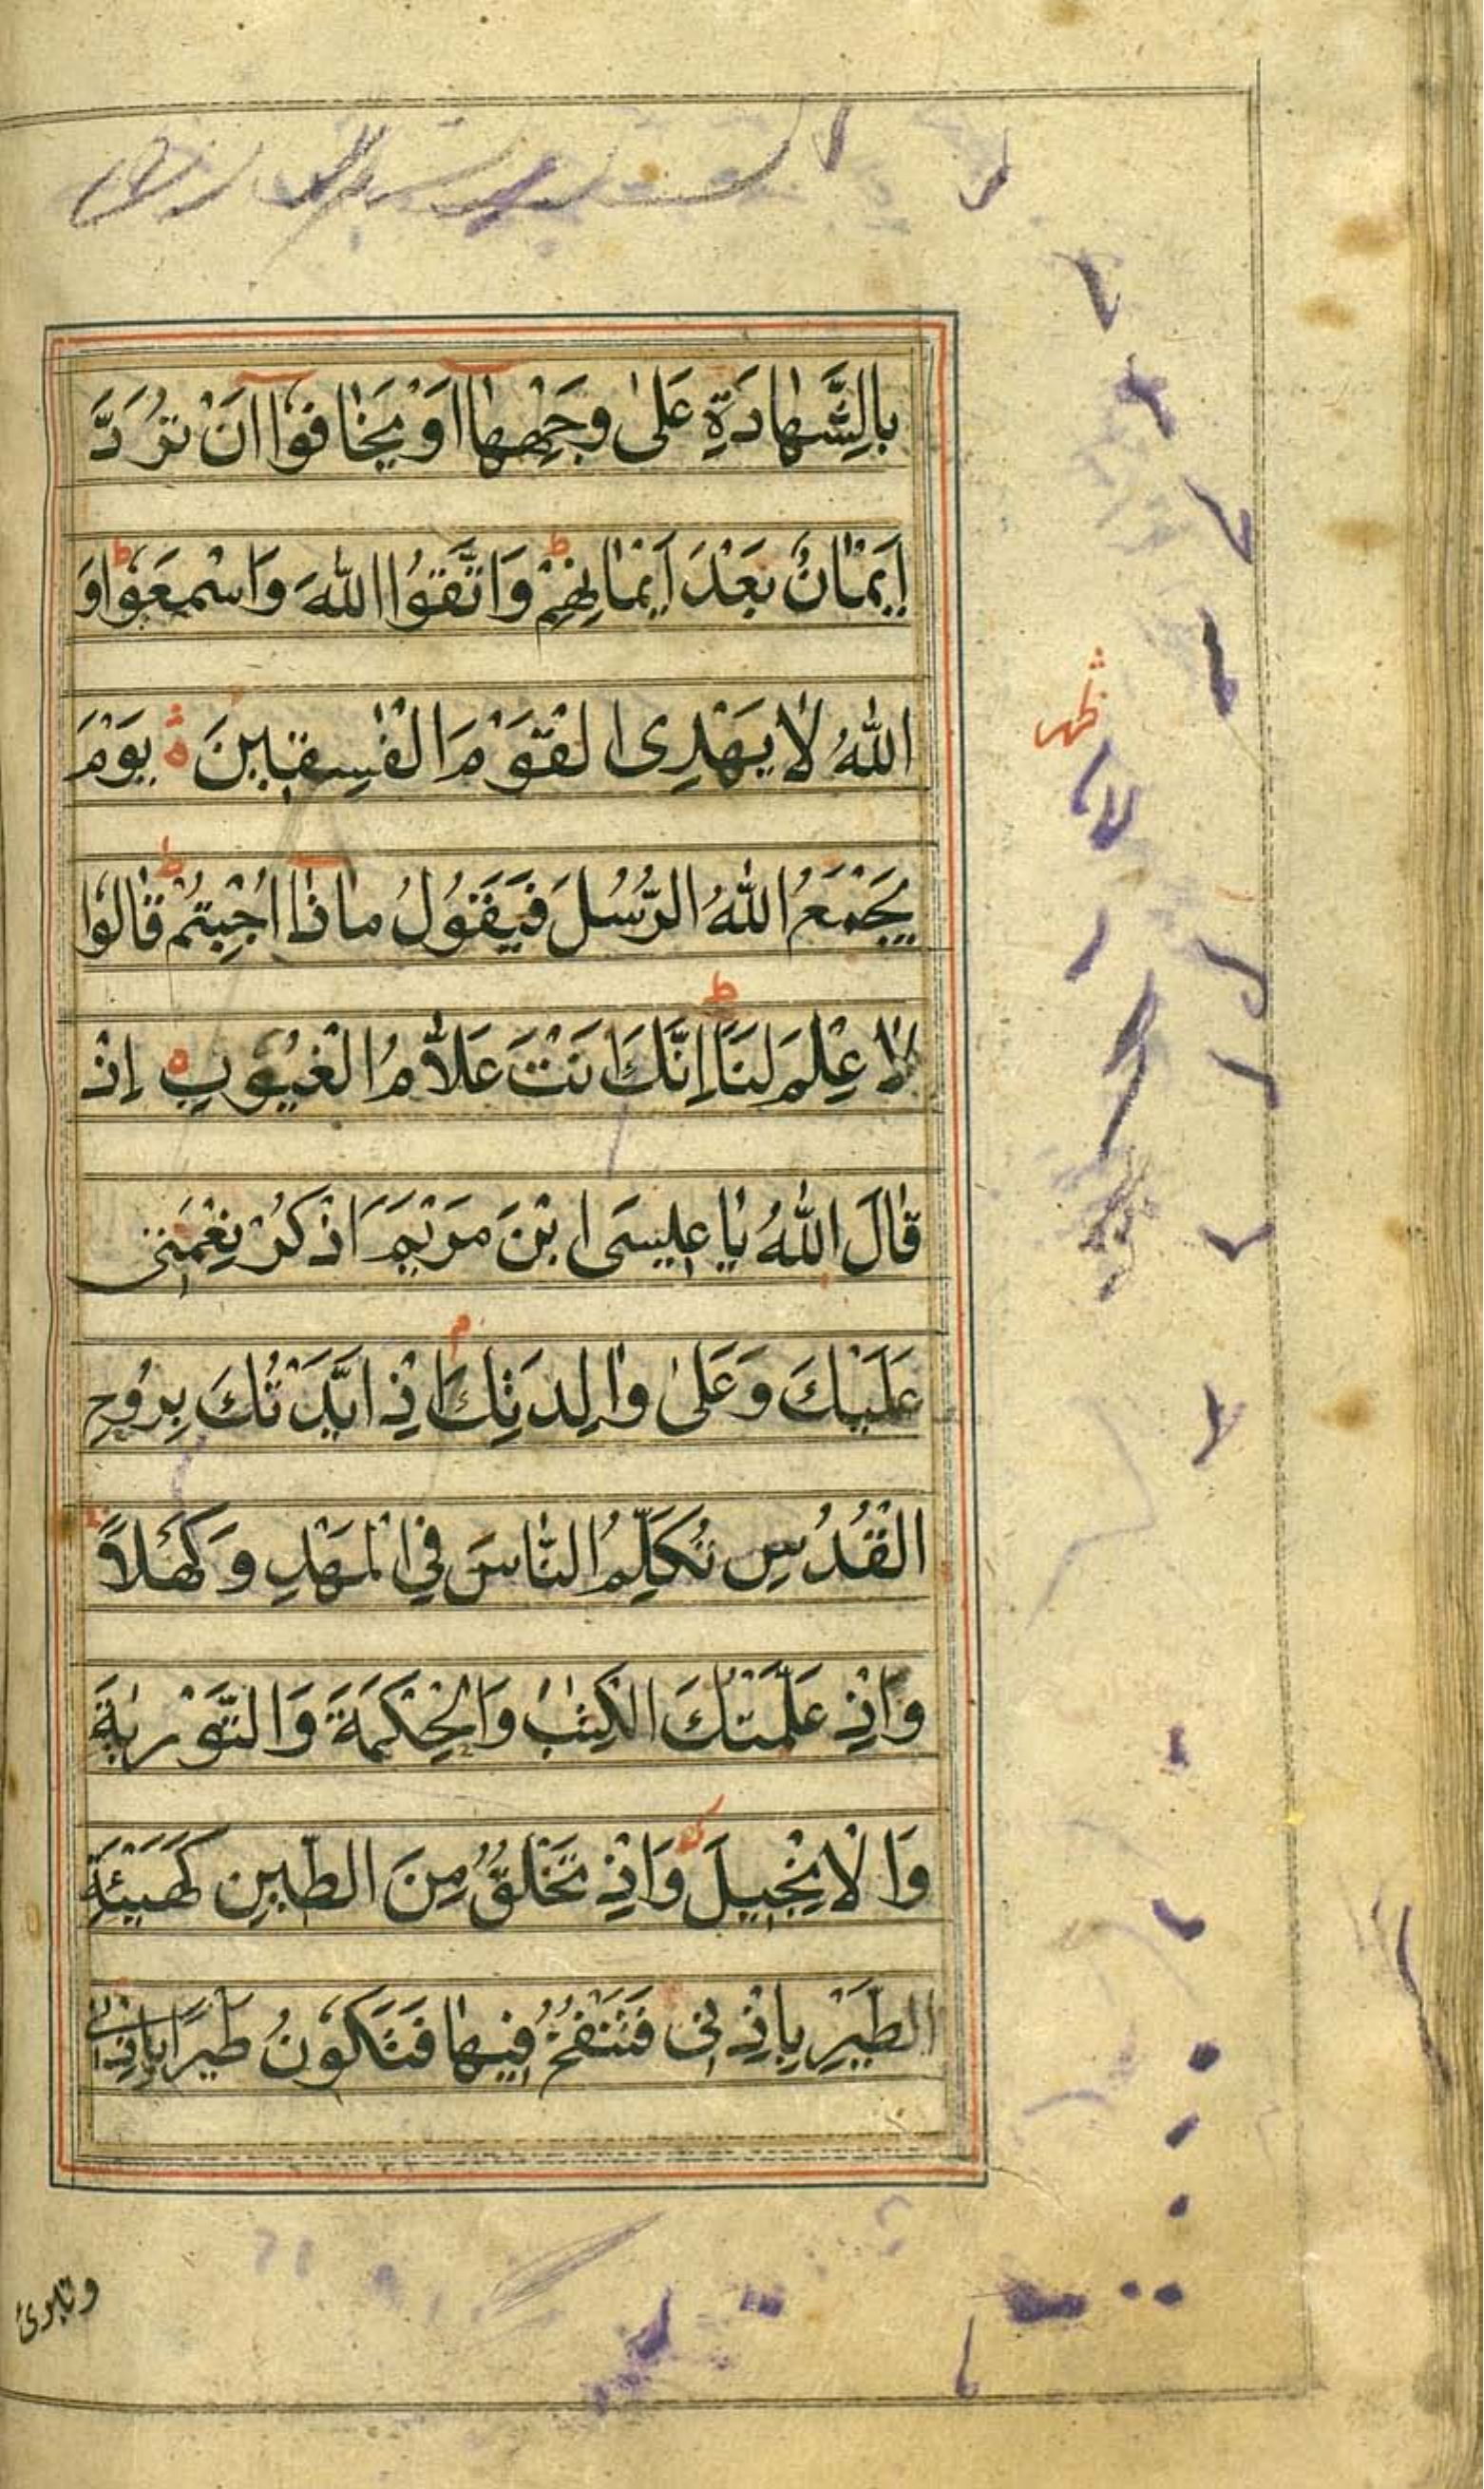 بِالشَّهَادَةِ عَلٰى وَجْهِهَا اَوْ يَخَافُوْا اَنْ تُرَدَّ
اَيْمَانٌ بَعْدَ اَيْمَانِهِمْ ط وَاتَّقُوا اللّٰهَ وَاسْمَعُوْا ط وَ
اللّٰهُ لَا يَهْدِى الْقَوْمَ الْفٰسِقِيْنَ ه يَوْمَ
يَجْمَعُ اللّٰهُ الرُّسُلَ فَيَقُوْلُ مَاذَا اُجِبْتُمْ ط قَالُوْا
لَا عِلْمَ لَنَا ط اِنَّكَ اَنْتَ عَلَّامُ الْغُيُوْبِ ه اِذْ
قَالَ اللّٰهُ يَا عِيْسَى ابْنَ مَرْيَمَ اذْكُرْ نِعْمَتِىْ
عَلَيْكَ وَعَلٰى وَالِدَتِكَ م اِذْ اَيَّدْتُكَ بِرُوْحِ
الْقُدُسِ تُكَلِّمُ النَّاسَ فِى الْمَهْدِ وَكَهْلًا
وَاِذْ عَلَّمْتُكَ الْكِتٰبَ وَالْحِكْمَةَ وَالتَّوْرٰيةَ
وَالْاِنْجِيْلَ وَاِذْ تَخْلُقُ مِنَ الطِّيْنِ كَهَيْئَةِ
الطَّيْرِ بِاِذْنِىْ فَتَنْفُخُ فِيْهَا فَتَكُوْنُ طَيْرًا بِاِذْنِىْ
وتبرئ